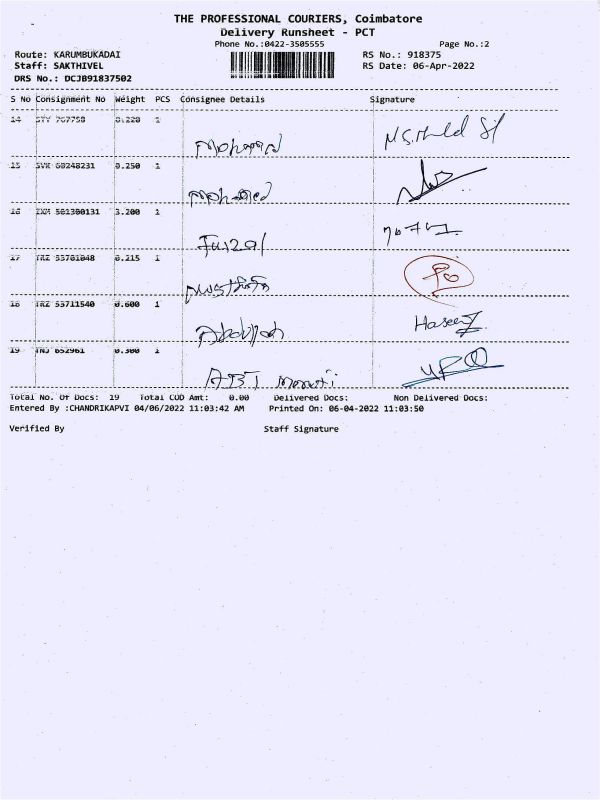 THE PROFESSIONAL COURIERS, Coimbatore
Delivery Runsheet - PCT
Phone No.:0422-3505555 Page No.:2
Route: KARUMBUKADAI RS No.: 918375
Staff: SAKTHIVEL RS Date: 06-Apr-2022
DRS No.: DCJB91837502
S No Consignment No Weight PCS Consignee Details Signature
14 0.220 1
15 SVK 60248231 0.250 1
16 561300131 3.200 1
Faizal
17 TRZ 55701048 0.215 1
18 TRZ 55711540 0.600 1
Abdullah Haseena
19 TNJ 652961 0.300 1
ABT Maruti
Total No. Of Docs: 19 Total COD Amt: 0.00 Delivered Docs: Non Delivered Docs:
Entered By :CHANDRIKAPVI 04/06/2022 11:03:42 AM Printed On: 06-04-2022 11:03:50
Verified By Staff Signature